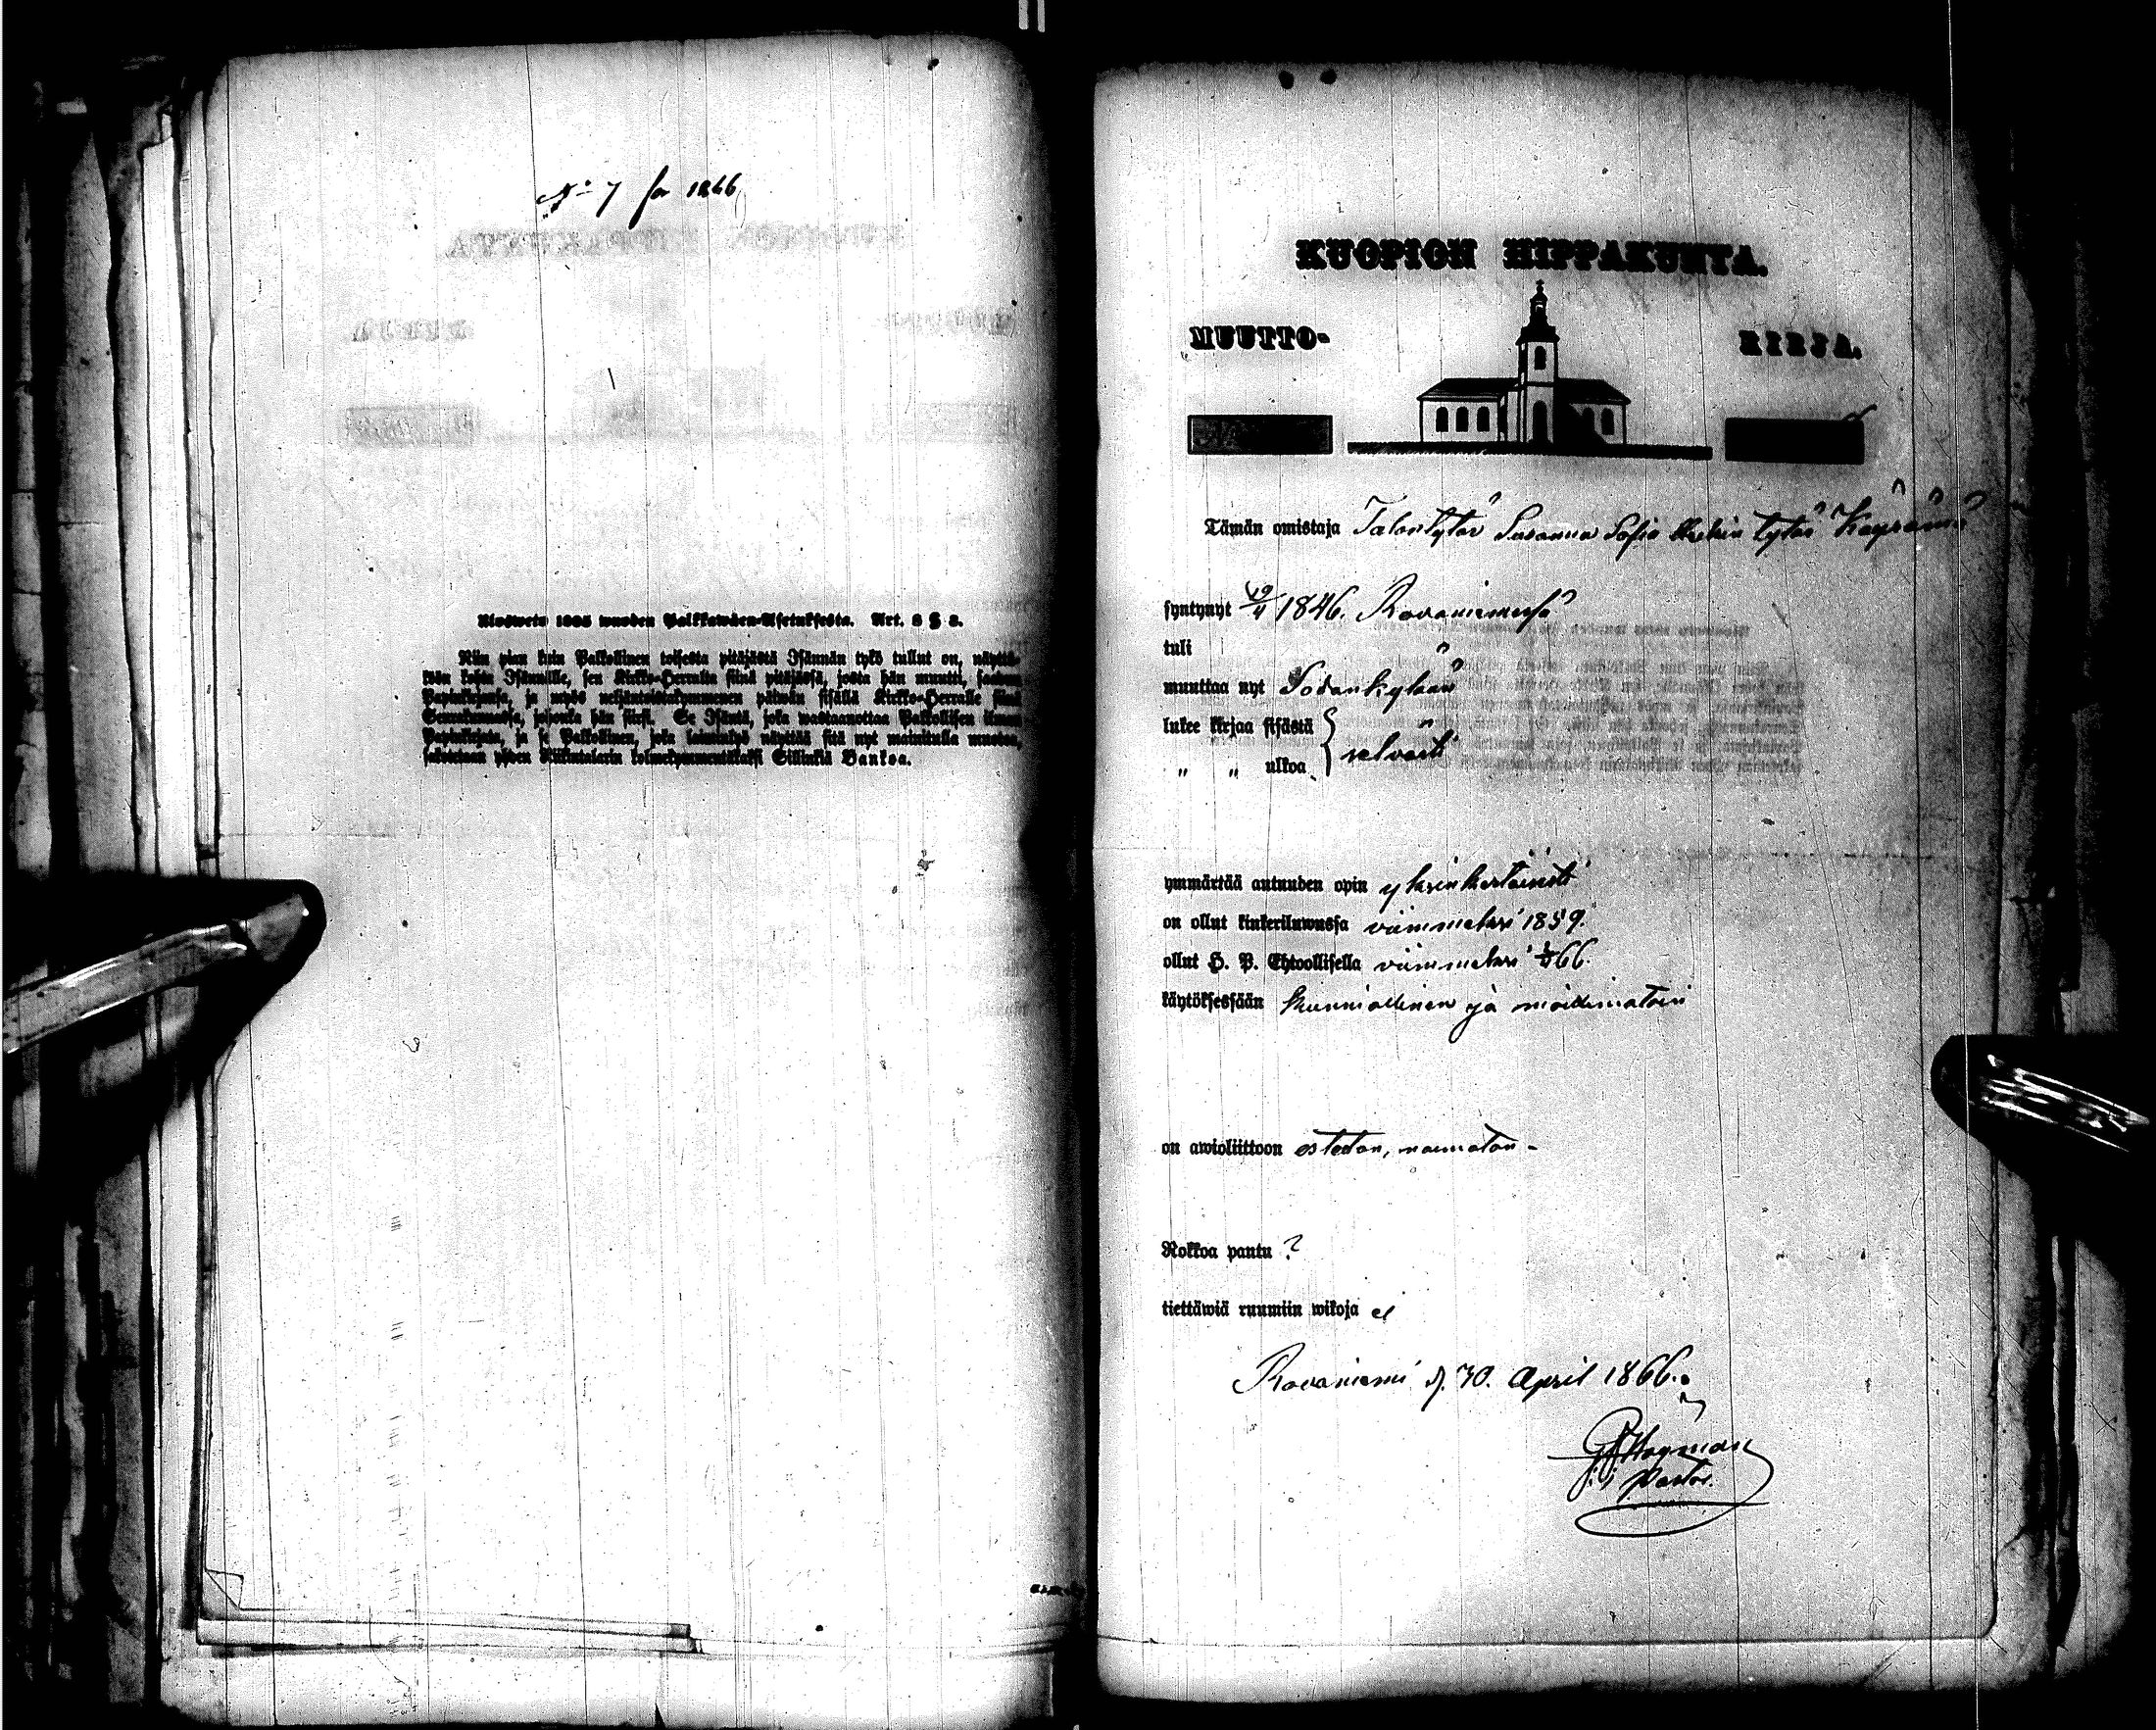 No 7 för 1866
Uloswetu 1805 wuoden Palkkawäen-Asetuksesta. Art. 8 § 8.
Niin pian kuin Palkollinen toisesta pitäjästä Isännän tykö tullut on, näyttä-
köön kohta Isännälle, sen Kirkko-Herralta siinä pitäjässä, josta hän muutti, saatun
Papinkirjansa, ja myös neljäntoistakymmenen päiwän sisällä Kirkko-Herralle siinä
Seurakunnassa, johonka hän siirsi. Se Isäntä, joka wastaanottaa Palkollisen ilman
Papinkirjata, ja se Palkollinen, joka laiminlyö näyttää sitä nyt mainitulla muotoa,
sakotetaan yhden Riikintalarin kolmekymmentäkaksi Sillinkiä Bankoa.
KUOPION HIPPAKUNTA.
MUUTTO- KIRJA.
Tämän omistaja Talontytär Susanna Sofia tytär Köyräinä
syntynyt 19/4 1846. Rovaniemessä
tuli
muuttaa nyt Sodankylään
lukee kirjaa sisästä } selvästi
„ „ ulkoa
ymmärtää autuuden opin yksinkertaisesti
on ollut kinkeriluwussa viimmeksi 1859.
ollut H. P. Ehtoollisella viimmeksi 66.
käytöksessään kunniallinen ja moittimatoin
on awioliittoon esteetön, naimaton -
Rokkoa pantu ?
tiettäwiä ruumiin wikoja ei
Rovaniemi d. 30. April 1866.
Heyman
Pastor.